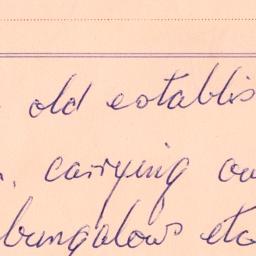 old establis
carrying ou
bungalows etc